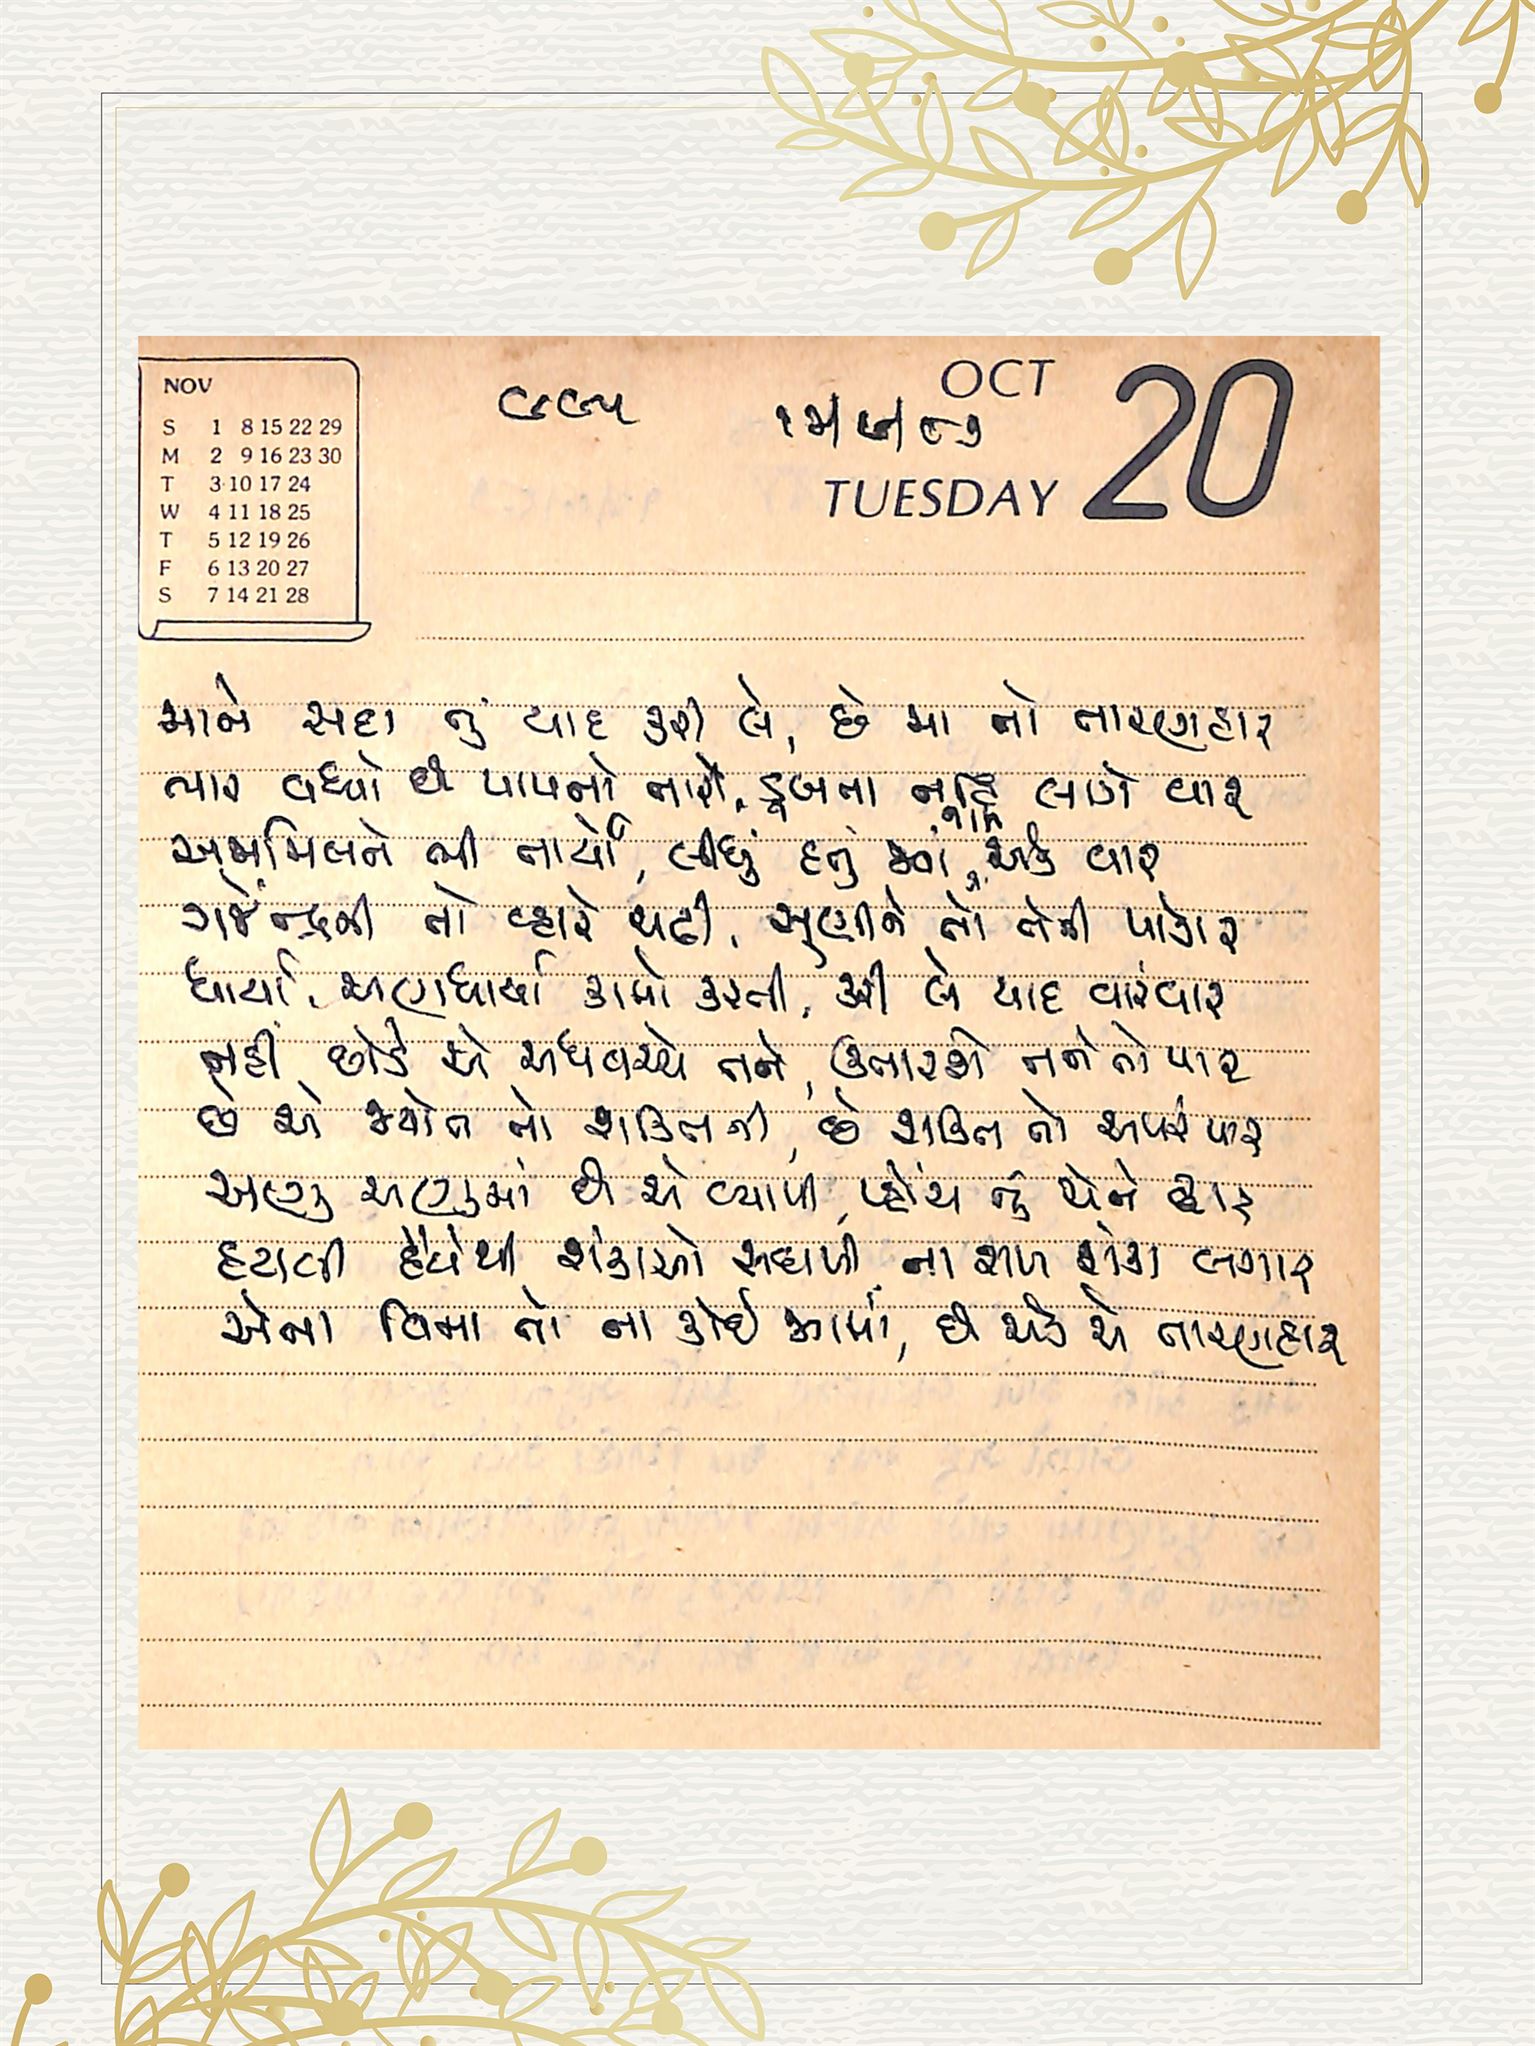 NOV
OCT 20
TUESDAY
S 1 8 15 22 29
M 2 9 16 23 30
T 3 10 17 24
W 4 11 18 25
T 5 12 19 26
F 6 13 20 27
S 7 14 21 28
માને સદા તું યાદ કરી લે, છે મા તો તારણહાર
ભાર વધ્યો છે પાપનો તારો, ડૂબતા નહિ લાગે વાર
તો તારી, લીધું હતું નામ એક વાર
ગજેન્દ્રની તો વ્હારે ચઢી, સુણીને તો તેની પોકાર
ધાર્યા, અણધાર્યા કામો કરતી, કરી લે યાદ વારંવાર
નહીં છોડે એ અધવચ્ચે તને, ઉતારશે તને તો પાર
છે એ સ્ત્રોત તો શક્તિની, છે શક્તિ તો અપરંપાર
અણુ અણુમાં છે એ વ્યાપી, પ્હોંચ તું એને દ્વાર
હટાવી હૈયેથી શંકાઓ સઘળી, ના રાખ શંકા લગાર
એના વિના તો ના કોઈ મા, છે એક એ તારણહાર